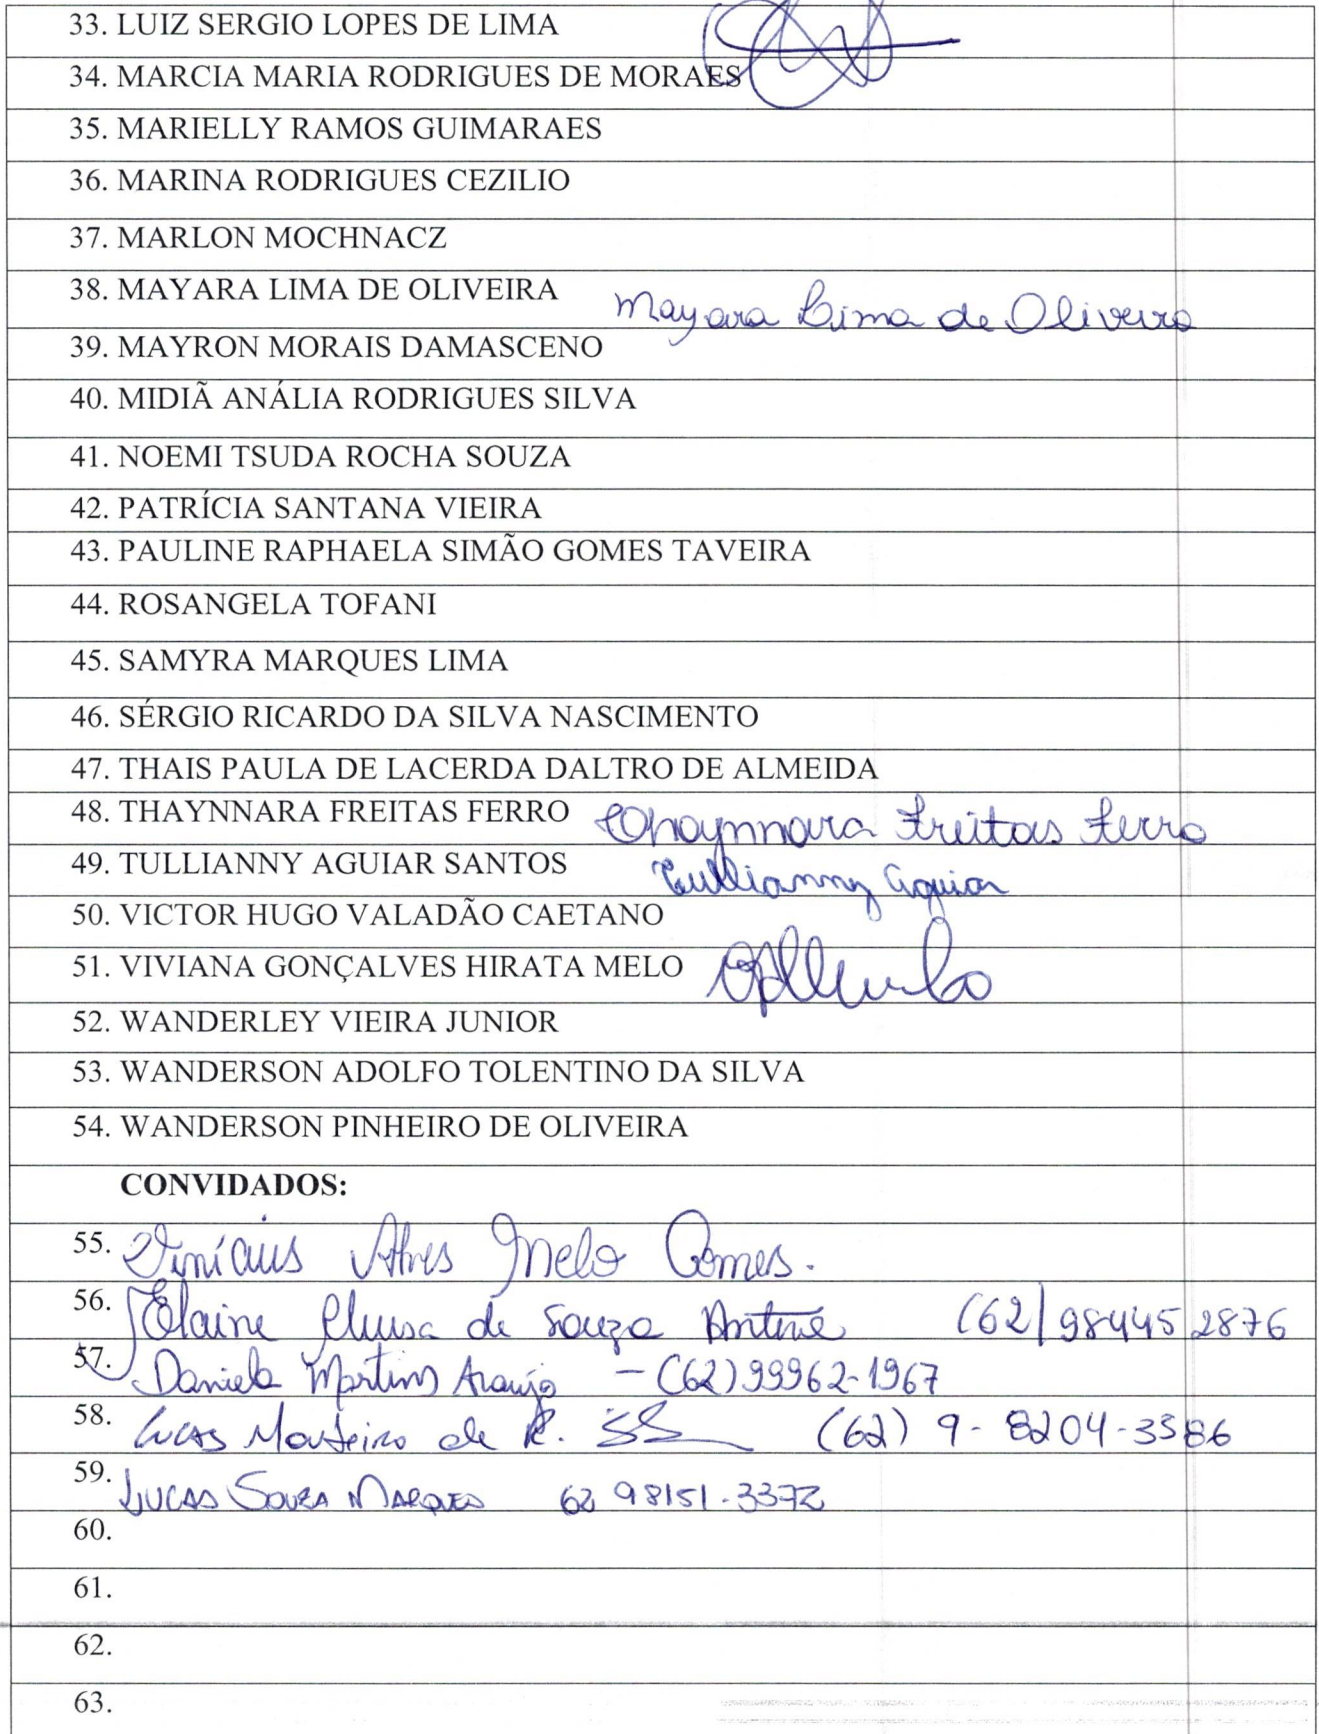 33. LUIZ SERGIO LOPES DE LIMA
34. MARCIA MARIA RODRIGUES DE MORAES
35. MARIELLY RAMOS GUIMARAES
36. MARINA RODRIGUES CEZILIO
37. MARLON MOCHNACZ
38. MAYARA LIMA DE OLIVEIRA Mayara Lima de Oliveira
39. MAYRON MORAIS DAMASCENO
40. MIDIÃ ANÁLIA RODRIGUES SILVA
41. NOEMI TSUDA ROCHA SOUZA
42. PATRÍCIA SANTANA VIEIRA
43. PAULINE RAPHAELA SIMÃO GOMES TAVEIRA
44. ROSANGELA TOFANI
45. SAMYRA MARQUES LIMA
46. SÉRGIO RICARDO DA SILVA NASCIMENTO
47. THAIS PAULA DE LACERDA DALTRO DE ALMEIDA
48. THAYNNARA FREITAS FERRO Thaynnara Freitas Ferro
49. TULLIANNY AGUIAR SANTOS Tullianny Aguiar
50. VICTOR HUGO VALADÃO CAETANO
51. VIVIANA GONÇALVES HIRATA MELO
52. WANDERLEY VIEIRA JUNIOR
53. WANDERSON ADOLFO TOLENTINO DA SILVA
54. WANDERSON PINHEIRO DE OLIVEIRA
CONVIDADOS:
55. Vinícius Alves Melo Gomes.
56. Elaine de Souza (62) 98445 2876
57. Daniela Martins Araujo - (62) 99962-1967
58. Lucas Monteiro de R. (62) 9-8204-3386
59. LUCAS SOUZA MARQUES 62 98151-3372
60.
61.
62.
63.